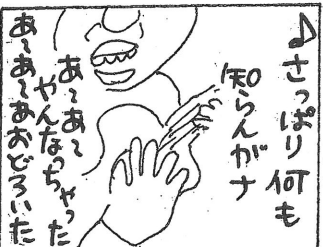 ♪さっぱり何も
知らんがナ
あ〜あ〜
やんなっちゃった
あ〜あ〜あおどろいた